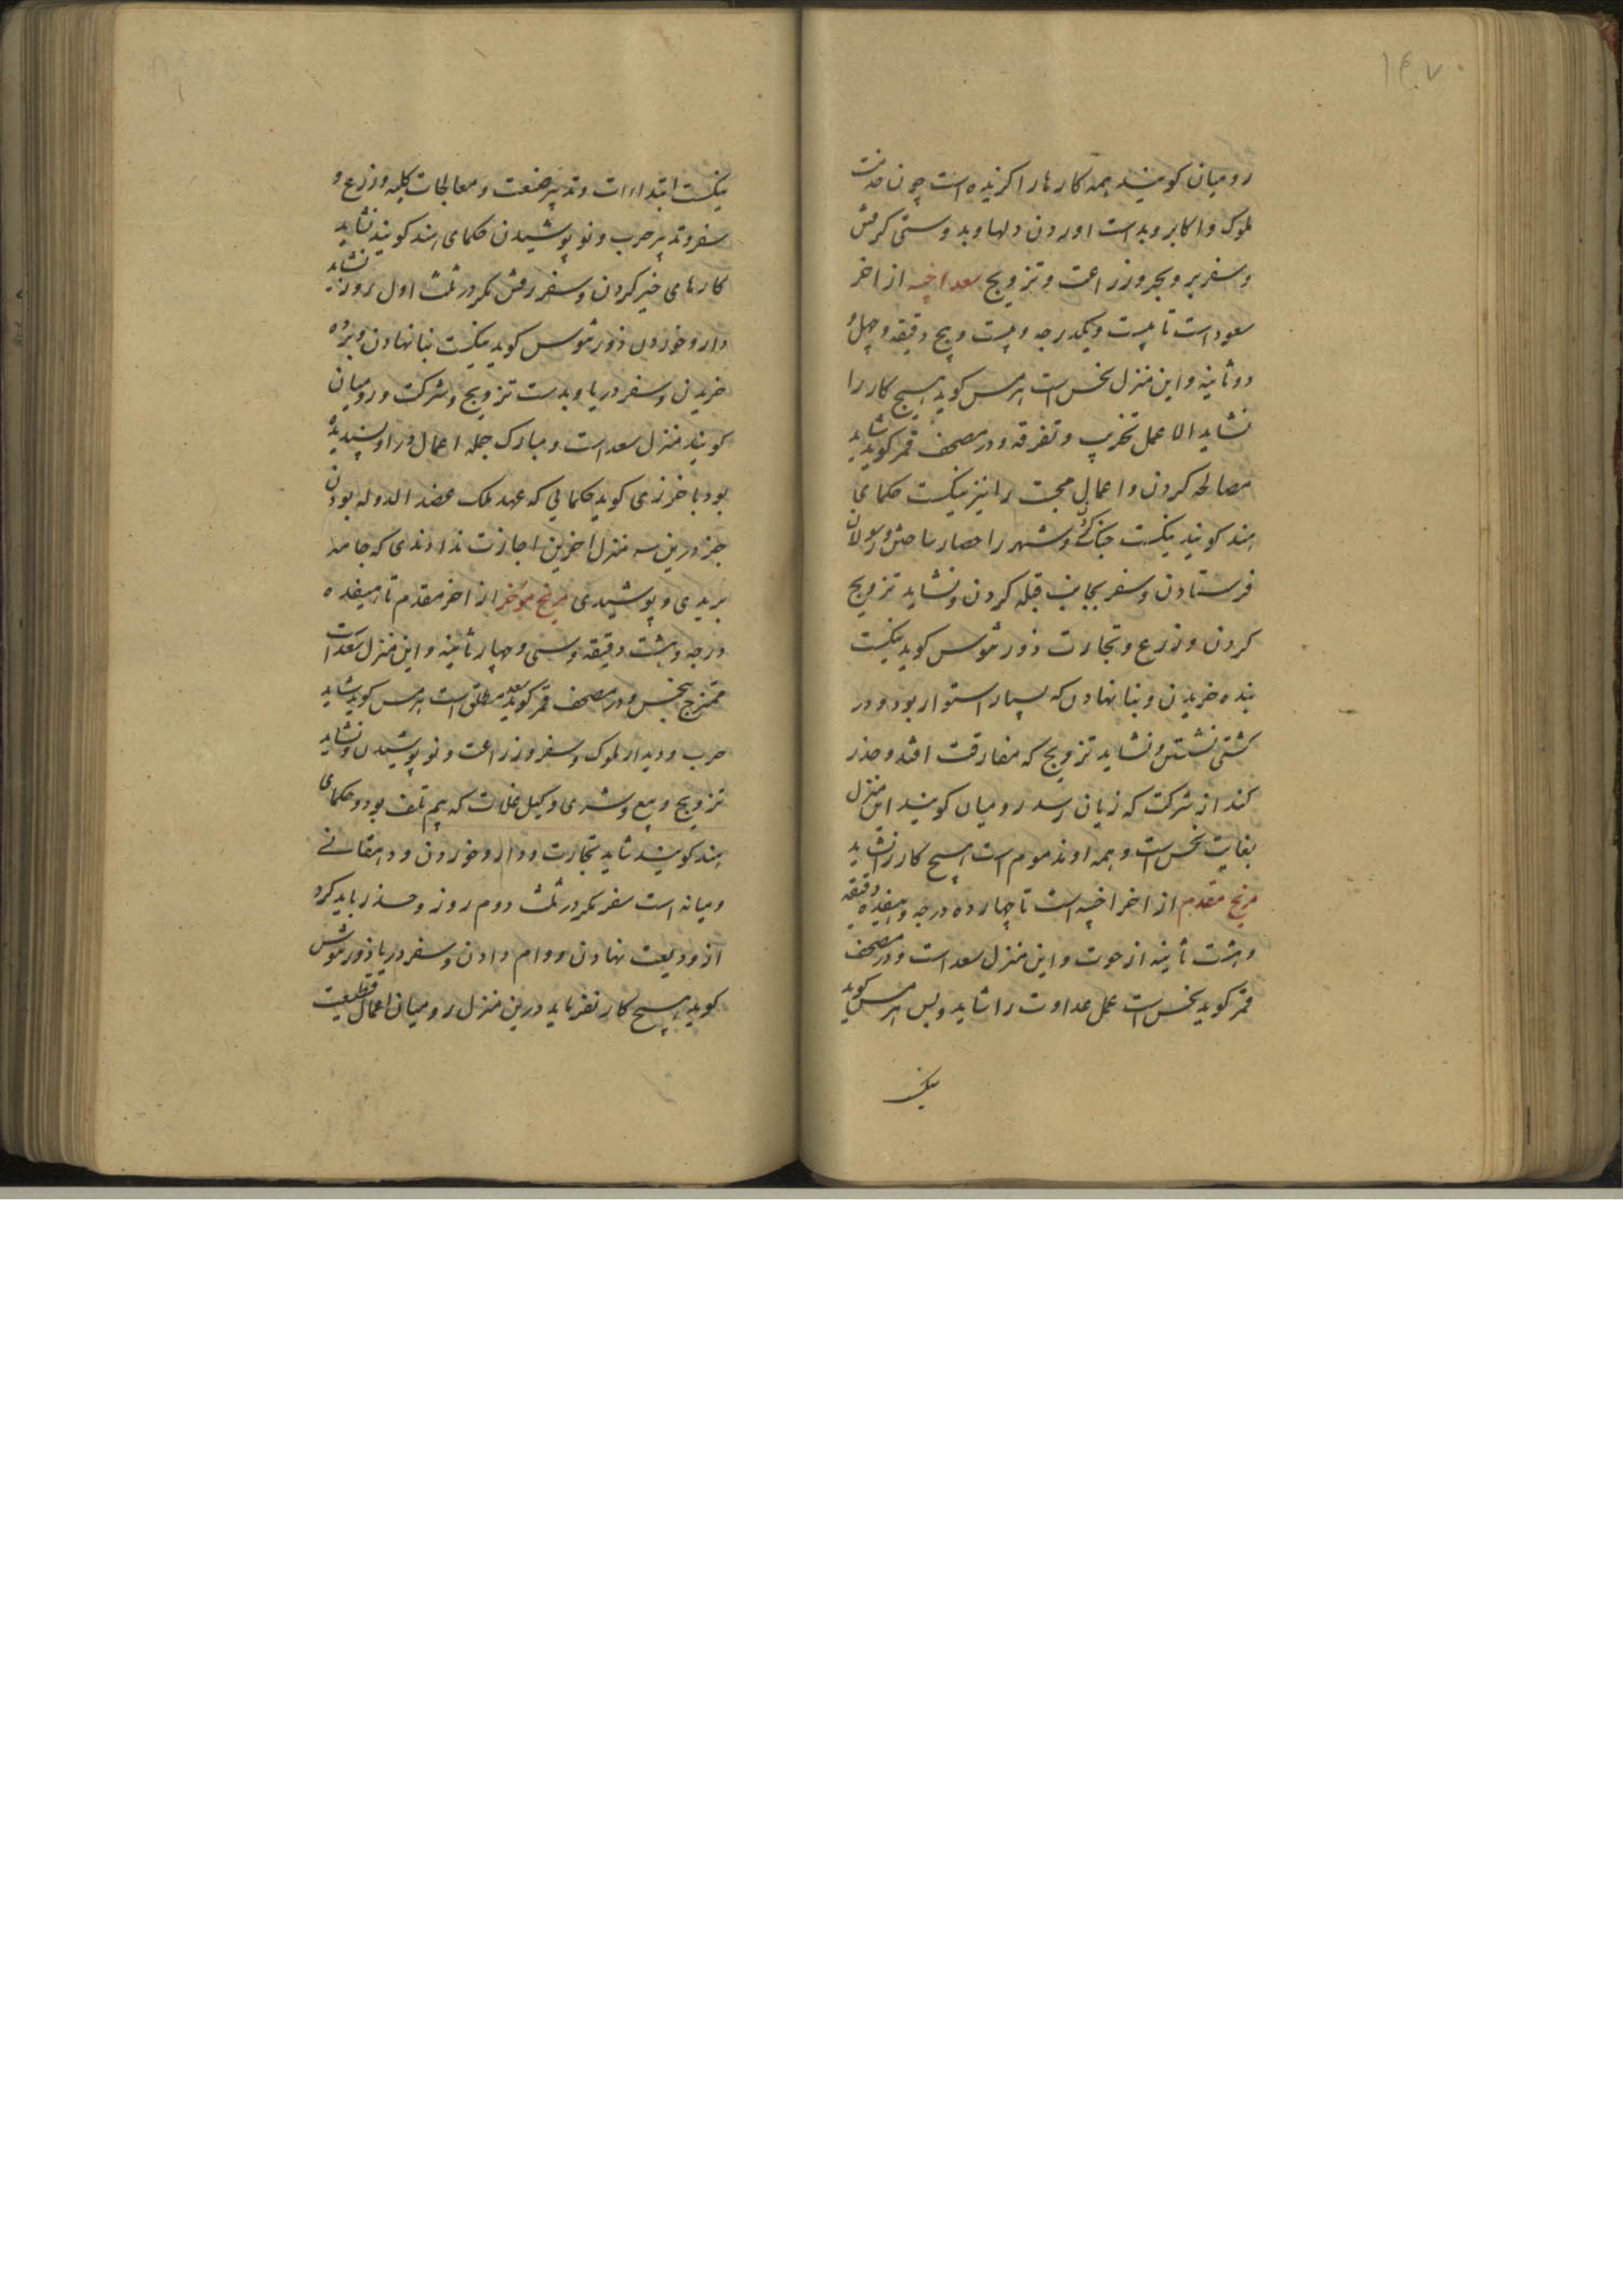 ۱۴۰۷
رومیان کویند همه کارها را کزیده است چون خدمت
ملوک و اکابر و بدست اوردن دلها و بدوستی کرفتن
و سفر بر و بحر و زراعت و تزویج سعد اخبیه از اخر
سعود است تا بیست و یکدرجه و بیست و پنج دقیقه و چهل و
دو ثانیه و این منزل نحس است هرمس کوید هیچ کار را
نشاید الا عمل تخریب و تفرقه و در مصحف قمر کوید شاید
مصالحه کردن و اعمال محبت را نیز نیکست حکمای
هند کویند نیکست جنک و شهر را حصار ساختن و رسولان
فرستادن و سفر بجانب قبله کردن و نشاید تزویج
کردن و زرع و تجارت ذورثیوس کوید نیکست
بنده خریدن و بنا نهادن که بسیار استوار بود و در
کشتی نشستن و نشاید تزویج که مفارقت افتد و حذر
کند از شرکت که زیان رسد رومیان کویند این منزل
بغایت نحس است و همه او مذموم است هیچ کار را نشاید
فرغ مقدم از اخر اخبیه است تا چهارده درجه و هفده دقیقه
و هشت ثانیه از حوت و این منزل سعد است و در مصحف
قمر کوید نحس است عمل عداوت را شاید و بس هرمس کوید
نیکست
نیکست ابتداءات و تدبیر صنعت و معالجات کلیه و زرع و
سفر و تدبیر حرب و نو پوشیدن حکمای هند کویند نشاید
کارهای خیر کردن و سفر رفتن مکر در ثلث اول روز نشاید
دارو خوردن ذورثیوس کوید نیکست بنا نهادن و برده
خریدن و سفر دریا و بدست تزویج و شرکت و رومیان
کویند منزل سعد است و مبارک جمله اعمال در او پسندیده
بود باخرزی کوید حکمایی که عهد ملک عضد الدوله بودن
جز درین سه منزل اخرین اجازت ندادندی که جامه
بریدی و پوشیدی فرغ مؤخر از اخر مقدم تا هفده
درجه و هشت دقیقه و سی و چهار ثانیه و این منزل سعد است
ممتزج بنحس و در مصحف قمر کوید سعد مطلق است هرمس کوید شاید
حرب و دیدار ملوک و سفر و زراعت و نو پوشیدن و نشاید
تزویج و بیع و شری و کیل غلات که بیم تلف بود و حکمای
هند کویند شاید تجارت و دارو خوردن و دهقانی
و میانه است سفر مکر در ثلث دوم روز و حذر باید کرد
از ودیعت نهادن و وام دادن و سفر دریا ذورثیوس
کوید هیچ کار نفرماید درین منزل رومیان اعمال قطیعت